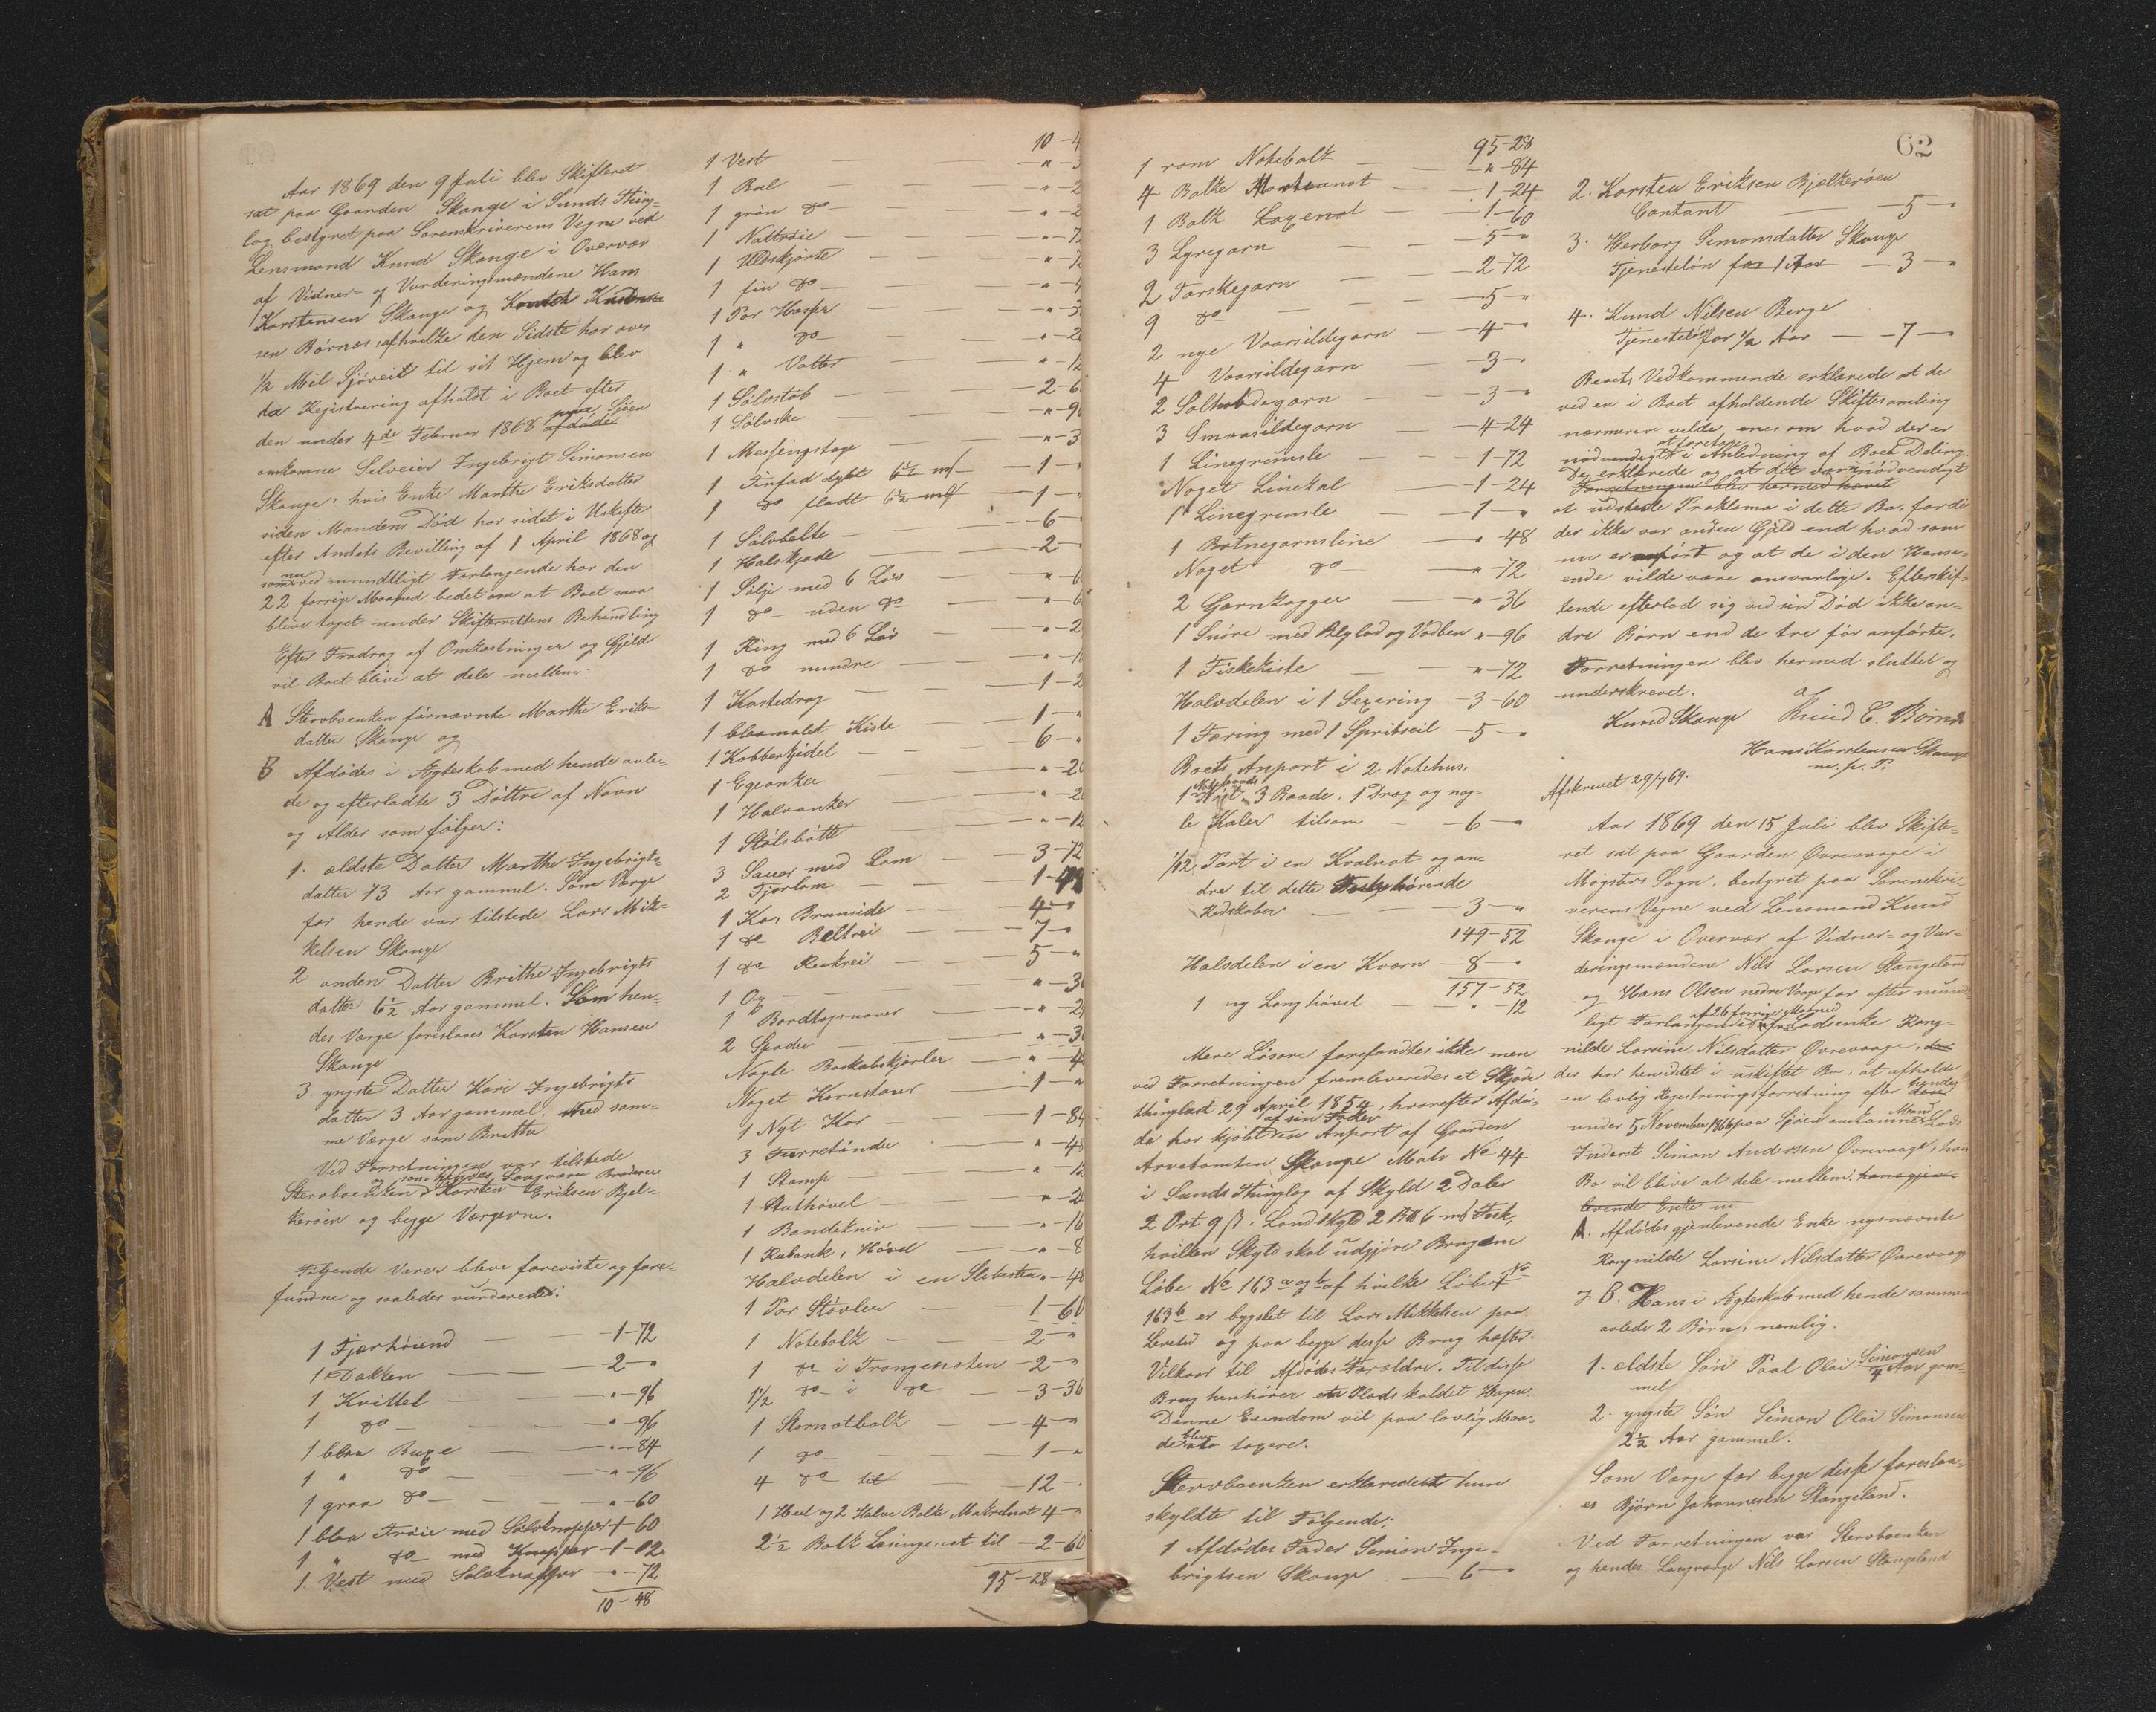 Aar 1869 den 9 Juli blev Skifteret
sat paa Gaarden Skange i Sunds Thing-
lag bestyret paa Sorenskriverens Vegne ved
Lensmand Knud Skange i Overvær
af Vidner- og Vurderingsmændene Hans
Karstensen Skange og
sen Børnæs, afhvilke den Sidste har over
1/2 Mil Sjøveit til sit Hjem og blev
da Registrering afholdt i Boet efter
den under 4de Februar 1868 paa Sjøen
omkomne Selveier Ingebrigt Simonsen
Skange, hvis Enke Marthe Eriksdatter
siden Mandens Død har sidet i Uskifte
efter Amtets Bevilling af 1 April 1868 og
som nu ved mundtligt Forlangende har den
22 forrige Maaned bedet om at Boet maa
blive taget under Skifterettens Behandling
Efter Fradrag af Omkostninger og Gjeld
vil Boet blive at dele mellem:
A Stervboenken førnævnte Marthe Eriks-
datter Skange og
B Afdødes i Ægteskab med hende avle-
de og efterladte 3 Døttre af Navn
og Alder som følger:
1. ældste Datter Marthe Ingebrigts-
datter 13 Aar gammel. Som Værge
for hende var tilstede Lars Mik-
kelsen Skange
2. anden Datter Brithe Ingebrigts
datter 6 1/2 Aar gammel. Som hen-
des Værge foreslaaes Karsten Hansen
Skange
3. yngste Datter Kari Ingebrigts
datter 3 Aar gammel. Med sam-
me Værge som Brithe
Ved Forretningen var tilstede
Stervboenken og som hendes Laugværge Broderen
Karsten Eriksen Bjel-
kerøen og begge Værgerne.
Følgende Varer bleve foreviste og fore-
fundne og saaledes vurderede:
1 Fjærhøiend — 1-72
1 Dakken — 2 - "
1 Kvittel — " - 96
1 do — " - 96
1 blaa Buxe — " - 84
1 " do — " - 96
1 graa do — " - 60
1 blaa Trøie med Sølvknapper 1-60
1 " do med Knapper - 1-12
1 Vest med Sølvknapper — " - 72
10-48
10-4
1 Vest
1 Bul
1 grøn do
1 Nattrøie
1 Uldskjorte
1 fin do
1 Par Hoser
1 " do
1 " Votter
1 Sølvstøb — 2-6
1 Sølvske — " - 9
1 Messingstage — " - 3
1 Tinfad dybt 6 1/2 m — 1
1 do fladt 6 1/2 m — 1
1 Sølvbelte — 6
1 Halskjæde — 2
1 Sølje med 6 Løv
1 do uden do
1 Ring med 6 Løv
1 do mindre
1 Kastedrag — 1-2
1 blaamalet Kiste — 1
1 Kobberkjedel — 6 -
1 Egeanker
1 Halvanker
1 Stølsbøtte
3 Sauer med Lam — 3-72
2 Fjorlam — 1-
1 Ko, Brunside — 4 -
1 do Beltrei — 7 -
1 do Reikrei — 5 - "
1 Ox
1 Bordtapnaver
2 Spader
Nogle Boskabskjørler
Noget Kornstaver — 1
1 Nyt Kar — 1-84
3 Tørretønder — " - 48
1 Stamp
1 Sluthøvel
1 Bandekniv — " - 16
1 Rubank, Høvel — " - 8
Halvdelen i en Slibesten " - 48
1 Par Støvler — 1-60
1 Notebolk — 2 - "
1 do i Trangenoten - 2 - "
1 1/2 do i do — 3-36
1 Stornotbolk — 4 - "
1 do — 1 - "
4 do til — 12 -
1 Heel og 2 Halve Bolke Makrelnot 4 - "
2 1/2 Bolk Løsingenot til — 2-60
95-28
62
95-28
1 ram Notebolk — " - 84
4 Bolke — 1-24
1 Bolk Laxenot — 1-60
3 Lyregarn — 5 - "
2 Torskegarn — 2-72
9 do — 5 - "
2 nye Vaarsildegarn — 4 - "
4 Vaarsildegarn — 3 - "
2 — 3 - "
3 Smaasildegarn — 4-24
1 Linegrimsle — 1-72
Noget Linekal — 1-24
1 Linegrimsle — 1 - "
1 Botnegarnsline — " 48
Noget do — " - 72
2 Garnkagger — " - 36
1 Snøre med Blylod og Vadben " - 96
1 Fiskekiste — " - 72
Halvdelen i 1 Sexæring - 3-60
1 Færing med 1 Spritseil - 5 - "
Boets Anpart i 2 Notehus,
1 Notebaad, 3 Baade, 1 Drag og nog-
le Kaler tilsam — 6 - "
1/12 Part i en Kvalnot og an-
dre til dette Fiskeri hørende
Redskaber — 3 - "
149-52
Halvdelen i en Kværn - 8 - "
157-52
1 ny Langhøvel — " - 12
Mere Løsøre forefandtes ikke men
ved Forretningen fremleveredes et Skjøde
thinglæst 29 April 1854, hvorefter Afdø-
de har kjøbt af sin Fader en Anpart af Gaarden
Arvetomten Skange Matr No 44
i Sunds Thinglag af Skyld 2 Daler
2 Ort 9 ß. Landskyld 2 Pd 6 m Fisk,
hvilken Skyld skal udgjøre Brugene
Løbe No 163 a og b af hvilke Løbe No
163 b er bygslet til Lars Mikkelsen paa
Levetid og paa begge disse Brug hefter
Vilkaar til Afdødes Forældre. Til disse
Brug henhører en Plads kaldet Hagen.
Denne Eiendom vil paa lovlig Maa-
de blive at taxere.
Stervboenken erklærede at hun
skyldte til Følgende:
1 Afdødes Fader Simon Inge-
brigtsen Skange — 6 - "
2. Karsten Eriksen Bjelkerøen
Contant — 5 - "
3. Herborg Simonsdatter Skange
Tjenesteløn for 1 Aar — 3 - "
4. Knud Nilsen Berge
Tjenesteløn for 1/2 Aar — 7 - "
Boets Vedkommende erklærede at de
ved en i Boet afholdende Skiftesamling
nærmere vilde enes om hvad der er
nødvendigt at foretage i Anledning af Boets Deling.
De erklærede og at det var unødvendigt
Forretningen blev hermed hævet
at udstede Proklama i dette Bo, fordi
der ikke var anden Gjeld end hvad som
nu er anført og at de i den Hense-
ende vilde være ansvarlige. Efterskif-
tende efterlod sig ved sin Død ikke an-
dre Børn end de tre før anførte.
Forretningen blev hermed sluttet og
underskrevet.
Knud Skange Knud C. Børnæs
Hans Karstensen Skange
m. p. P.
Afskrevet 29/7 69.
Aar 1869 den 15 Juli blev Skifte-
ret sat paa Gaarden Øvrevaage i
Møgsters Sogn, bestyret paa Sorenskri-
verens Vegne ved Lensmand Knud
Skange i Overvær af Vidner- og Vur-
deringsmændene Nils Larsen Stangeland
og Hans Olsen nedre Vaage for efter mund-
ligt Forlangende af 26 forrige Maaned fra Lodsenke Rang-
nilde Larsine Nilsdatter Øvrevaage,
der har hensiddet i uskiftet Bo, at afholde
en lovlig Registreringsforretning efter hendes
under 5 November 1866 paa Sjøen omkomne Mand Lods
Inderst Simon Andersen Øvrevaage, hvis
Bo vil blive at dele mellem: hans gjen-
levende Enke
A. Afdødes gjenlevende Enke nysnævnte
Rangnilde Larsine Nilsdatter Øvrevaage
B. Hans i Ægteskab med hende sammen
avlede 2 Børn, nemlig.
1. ældste Søn Paal Olai Simonsen
4 Aar gam-
mel
2. yngste Søn Simon Olai Simonsen
2 1/2 Aar gammel.
Som Værge for begge disse foreslaa-
es Bjørn Johannesen Stangeland.
Ved Forretningen var Stervboenken
og hendes Laugværge Nils Larsen Stangeland